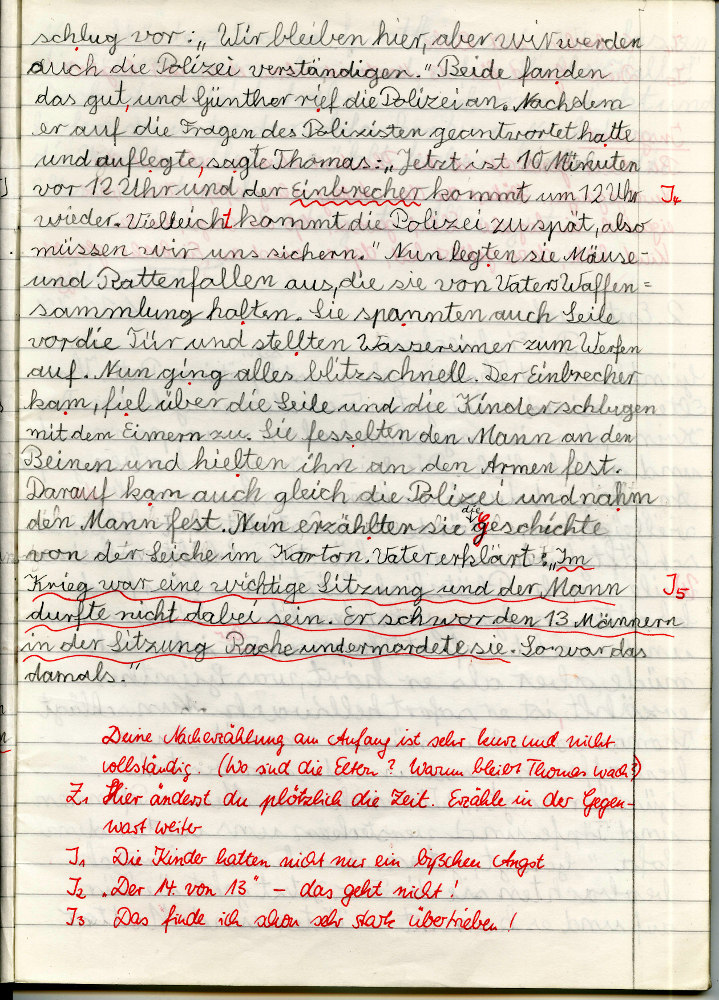 schlug vor: „Wir bleiben hier, aber wir werden
auch die Polizei verständigen." Beide fanden
das gut, und Günther rief die Polizei an. Nachdem
er auf die Fragen des Polizisten geantwortet hatte
und auflegte, sagte Thomas: „Jetzt ist 10 Minuten
vor 12 Uhr und der Einbrecher kommt um 12 Uhr J4
wieder. Vielleicht kommt die Polizei zu spät, also
müssen wir uns sichern." Nun legten sie Mäuse-
und Rattenfallen aus, die sie von Vaters Waffen=
sammlung holten. Sie spannten auch Seile
vor die Tür und stellten Wassereimer zum Werfen
auf. Nun ging alles blitzschnell. Der Einbrecher
kam, fiel über die Seile und die Kinder schlugen
mit dem Eimern zu. Sie fesselten den Mann an den
Beinen und hielten ihn an den Armen fest.
Darauf kam auch gleich die Polizei und nahm
den Mann fest. Nun erzählten sie die Geschichte
von der Leiche im Karton. Vater erklärt: „Im
Krieg war eine wichtige Sitzung und der Mann J5
durfte nicht dabei sein. Er schwor den 13 Männern
in der Sitzung Rache und ermordete sie. So war das
damals."
Deine Nacherzählung am Anfang ist sehr kurz und nicht
vollständig. (Wo sind die Eltern? Warum bleibt Thomas wach?)
Z1 Hier änderst du plötzlich die Zeit. Erzähle in der Gegen-
wart weiter
J1 Die Kinder hatten nicht nur ein bißchen Angst
J2 „Der 14. von 13" – das geht nicht!
J3 Das finde ich schon sehr stark übertrieben!